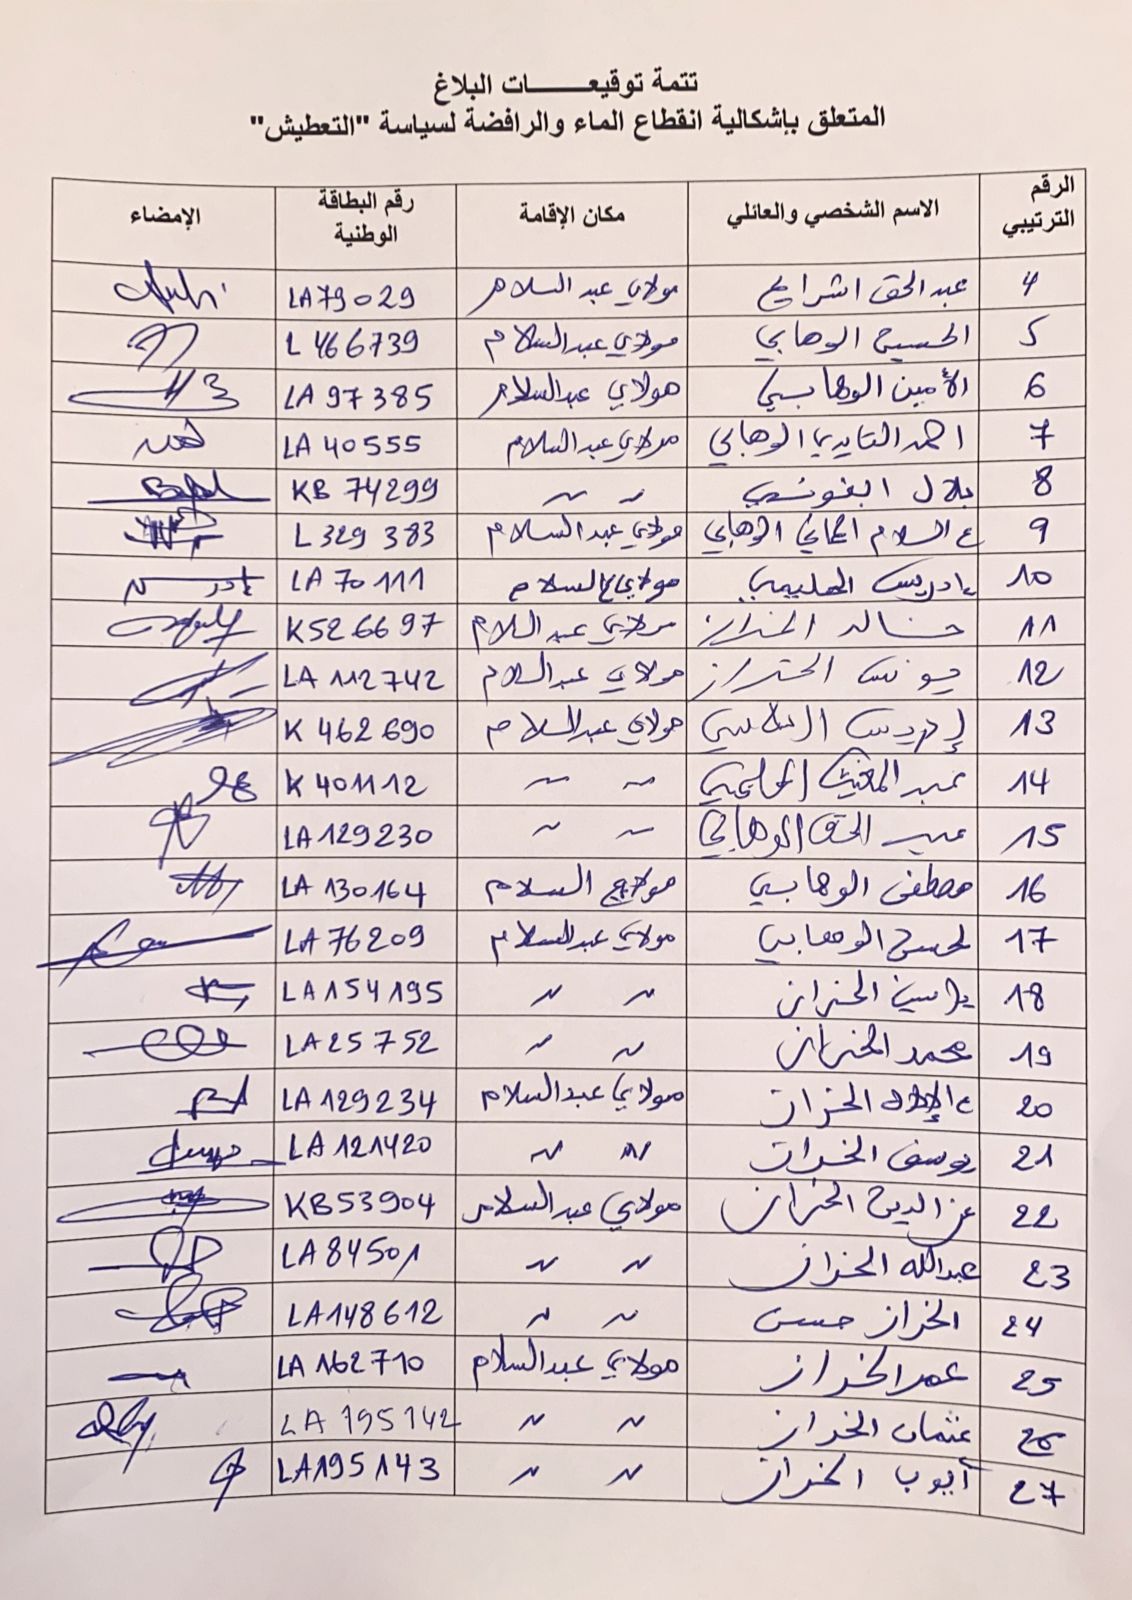 تتمة توقيعـــــات البلاغ
المتعلق بإشكالية انقطاع الماء والرافضة لسياسة "التعطيش"
الرقم الترتيبي الاسم الشخصي والعائلي مكان الإقامة رقم البطاقة الوطنية الإمضاء
4 عبد الحق اشراح مولاي عبد السلام LA79029
5 الحسين الوهابي مولاي عبد السلام L466739
6 الأمين الوهابي مولاي عبد السلام LA97385
7 احمد التايدي الوهابي مولاي عبد السلام LA40555
8 بلال البغوتي ~ ~ KB74299
9 ع السلام الوهابي مولاي عبد السلام L329383
10 ادريس الحليمي مولاي ع السلام LA70111
11 خالد الخراز مولاي عبد السلام K526697
12 يونس الخراز مولاي عبد السلام LA112742
13 إدريس مولاي عبد السلام K462690
14 عبد المغيث الحليمي ~ ~ K401112
15 عبد الحق الوهابي ~ ~ LA129230
16 مصطفى الوهابي مولاي ع السلام LA130164
17 لحسن الوهابي مولاي عبد السلام LA76209
18 ياسين الخراز ~ ~ LA154195
19 محمد الخراز ~ ~ LA25752
20 ع الإلاه الخراز مولاي عبد السلام LA129234
21 يوسف الخراز ~ ~ LA121420
22 عز الدين الخراز مولاي عبد السلام KB53904
23 عبد الله الخراز ~ ~ LA84501
24 الخراز حسن ~ ~ LA148612
25 عمر الخراز مولاي عبد السلام LA162710
26 عثمان الخراز ~ ~ LA195142
27 أيوب الخراز ~ ~ LA195143